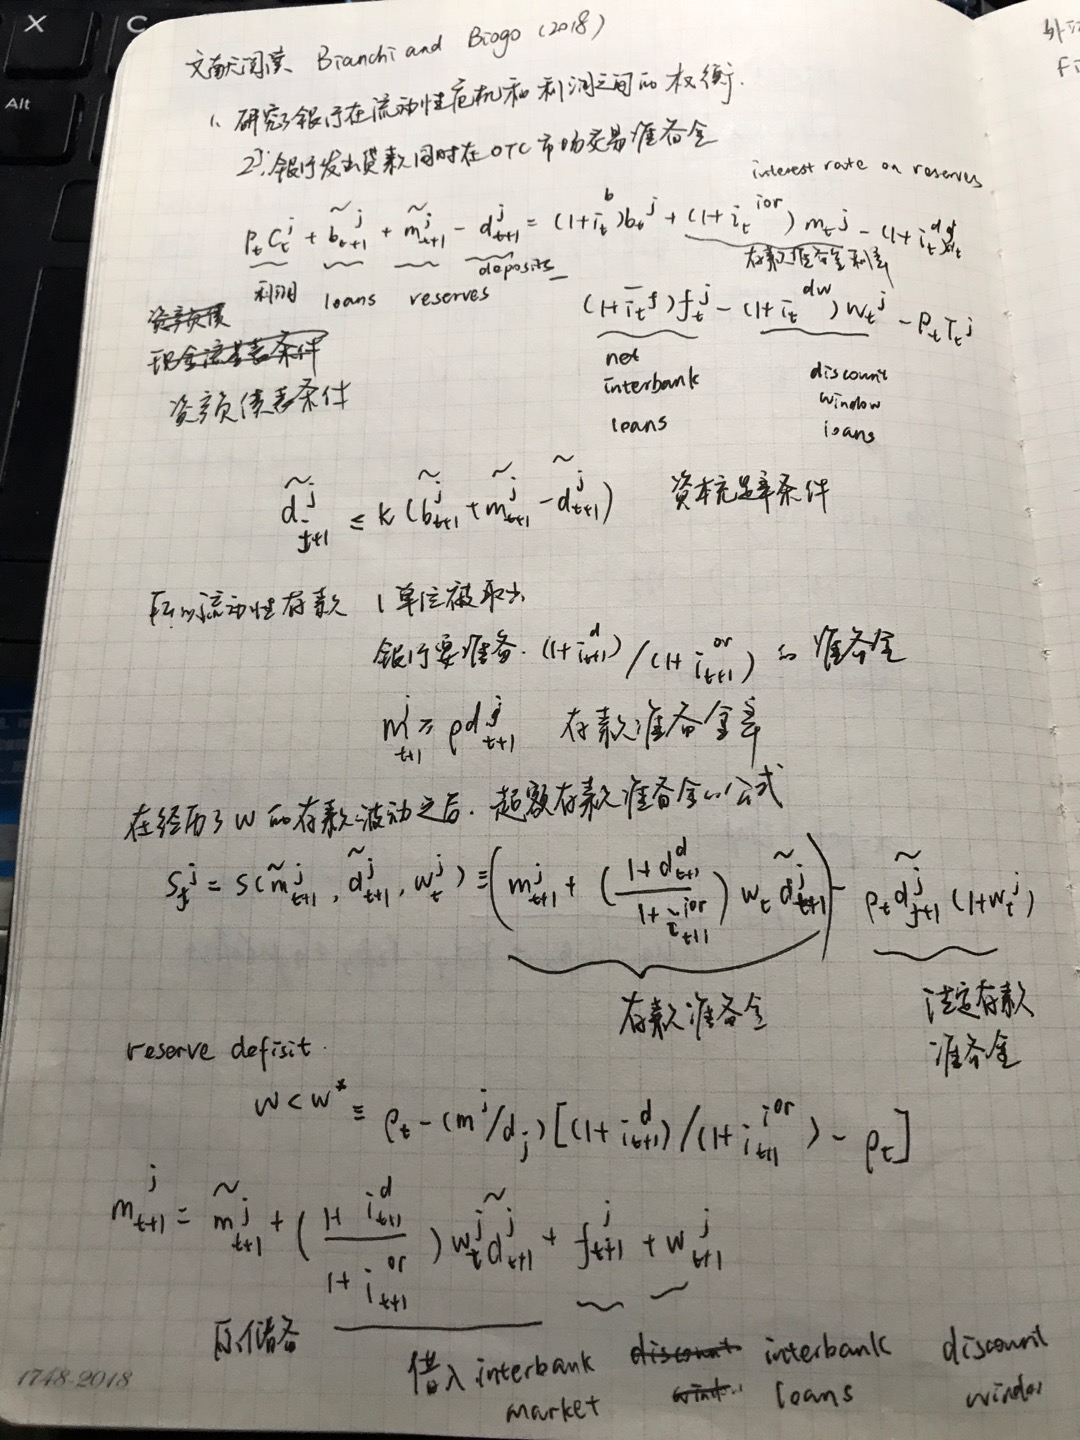 X
C
Alt
文献阅读 Bianchi and Biogo (2018)
1. 研究了银行在流动性危机和利润之间的权衡.
2. 银行发出贷款同时在OTC市场交易准备金
interest rate on reserves
P_t C_t^j + b̃_{t+1}^j + m̃_{t+1}^j - d̃_{t+1}^j = (1+i_t^b)b_t^j + (1+i_t^{ior})m_t^j - (1+i_t^d)d_t^j
利润 loans reserves deposits 存款准备金利率
(1+ī_t^f)f_t^j - (1+i_t^{dw})w_t^j - P_t T_t^j
net interbank loans
discount window loans
资产负债
现金流量表条件
资产负债表条件
d̃_{t+1}^j ≤ k(b̃_{t+1}^j + m̃_{t+1}^j - d̃_{t+1}^j) 资本充足率条件
流动性存款 1单位被取出
银行要准备. (1+i_{t+1}^d)/(1+i_{t+1}^{or}) 的准备金
m_{t+1}^j ≥ ρd_{t+1}^j 存款准备金率
在经历了W的存款波动之后. 超额存款准备金的公式
S_t^j = S(m̃_{t+1}^j, d̃_{t+1}^j, w_t^j) ≡ (m_{t+1}^j + (\frac{1+d_{t+1}^d}{1+i_{t+1}^{ior}}) w_t d̃_{t+1}^j) - ρ_t d̃_{t+1}^j (1+w_t^j)
存款准备金 法定存款准备金
reserve defisit.
w < w* ≡ ρ_t - (m^j/d_j)[(1+i_{t+1}^d)/(1+i_{t+1}^{ior}) - ρ_t]
m_{t+1}^j = m̃_{t+1}^j + (\frac{1+i_{t+1}^d}{1+i_{t+1}^{or}}) w_t^j d̃_{t+1}^j + f_{t+1}^j + w_{t+1}^j
原储备
借入interbank market discount wind. interbank loans discount window
1748-2018